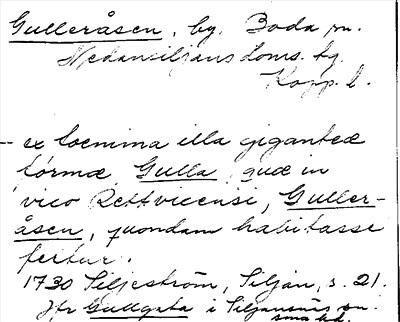 Gulleråsen, by. Boda sn.
Nedansiljans doms. hg.
Kopp. l.
-- ex foemina illa giganteæ
formæ Gulla, quæ in
vico Rettvicensi, Guller-
åsen, quondam habitasse
fertur.
1730 Siljeström, Siljan, s. 21.
Jfr Gullgata i Siljansnäs sn.
sma hd.